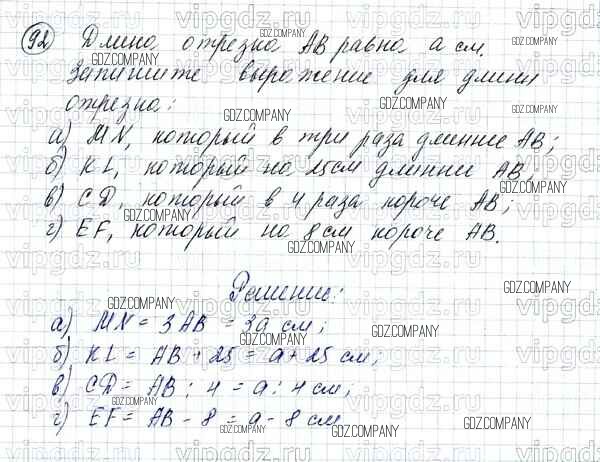 92 Длина отрезка AB равна a см.
Запишите выражение для длины
отрезка:
а) MN, который в три раза длиннее AB;
б) KL, который на 25см длиннее AB,
в) CD, который в 4 раза короче AB;
г) EF, который на 8 см короче AB.
Решение:
а) MN = 3AB = 3a см;
б) KL = AB + 25 = a + 25 см;
в) CD = AB : 4 = a : 4 см;
г) EF = AB - 8 = a - 8 см